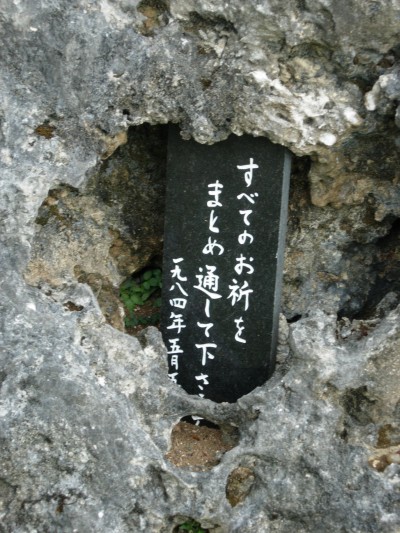 すべてのお祈を
まとめ通して下さ
一九八四年五月五